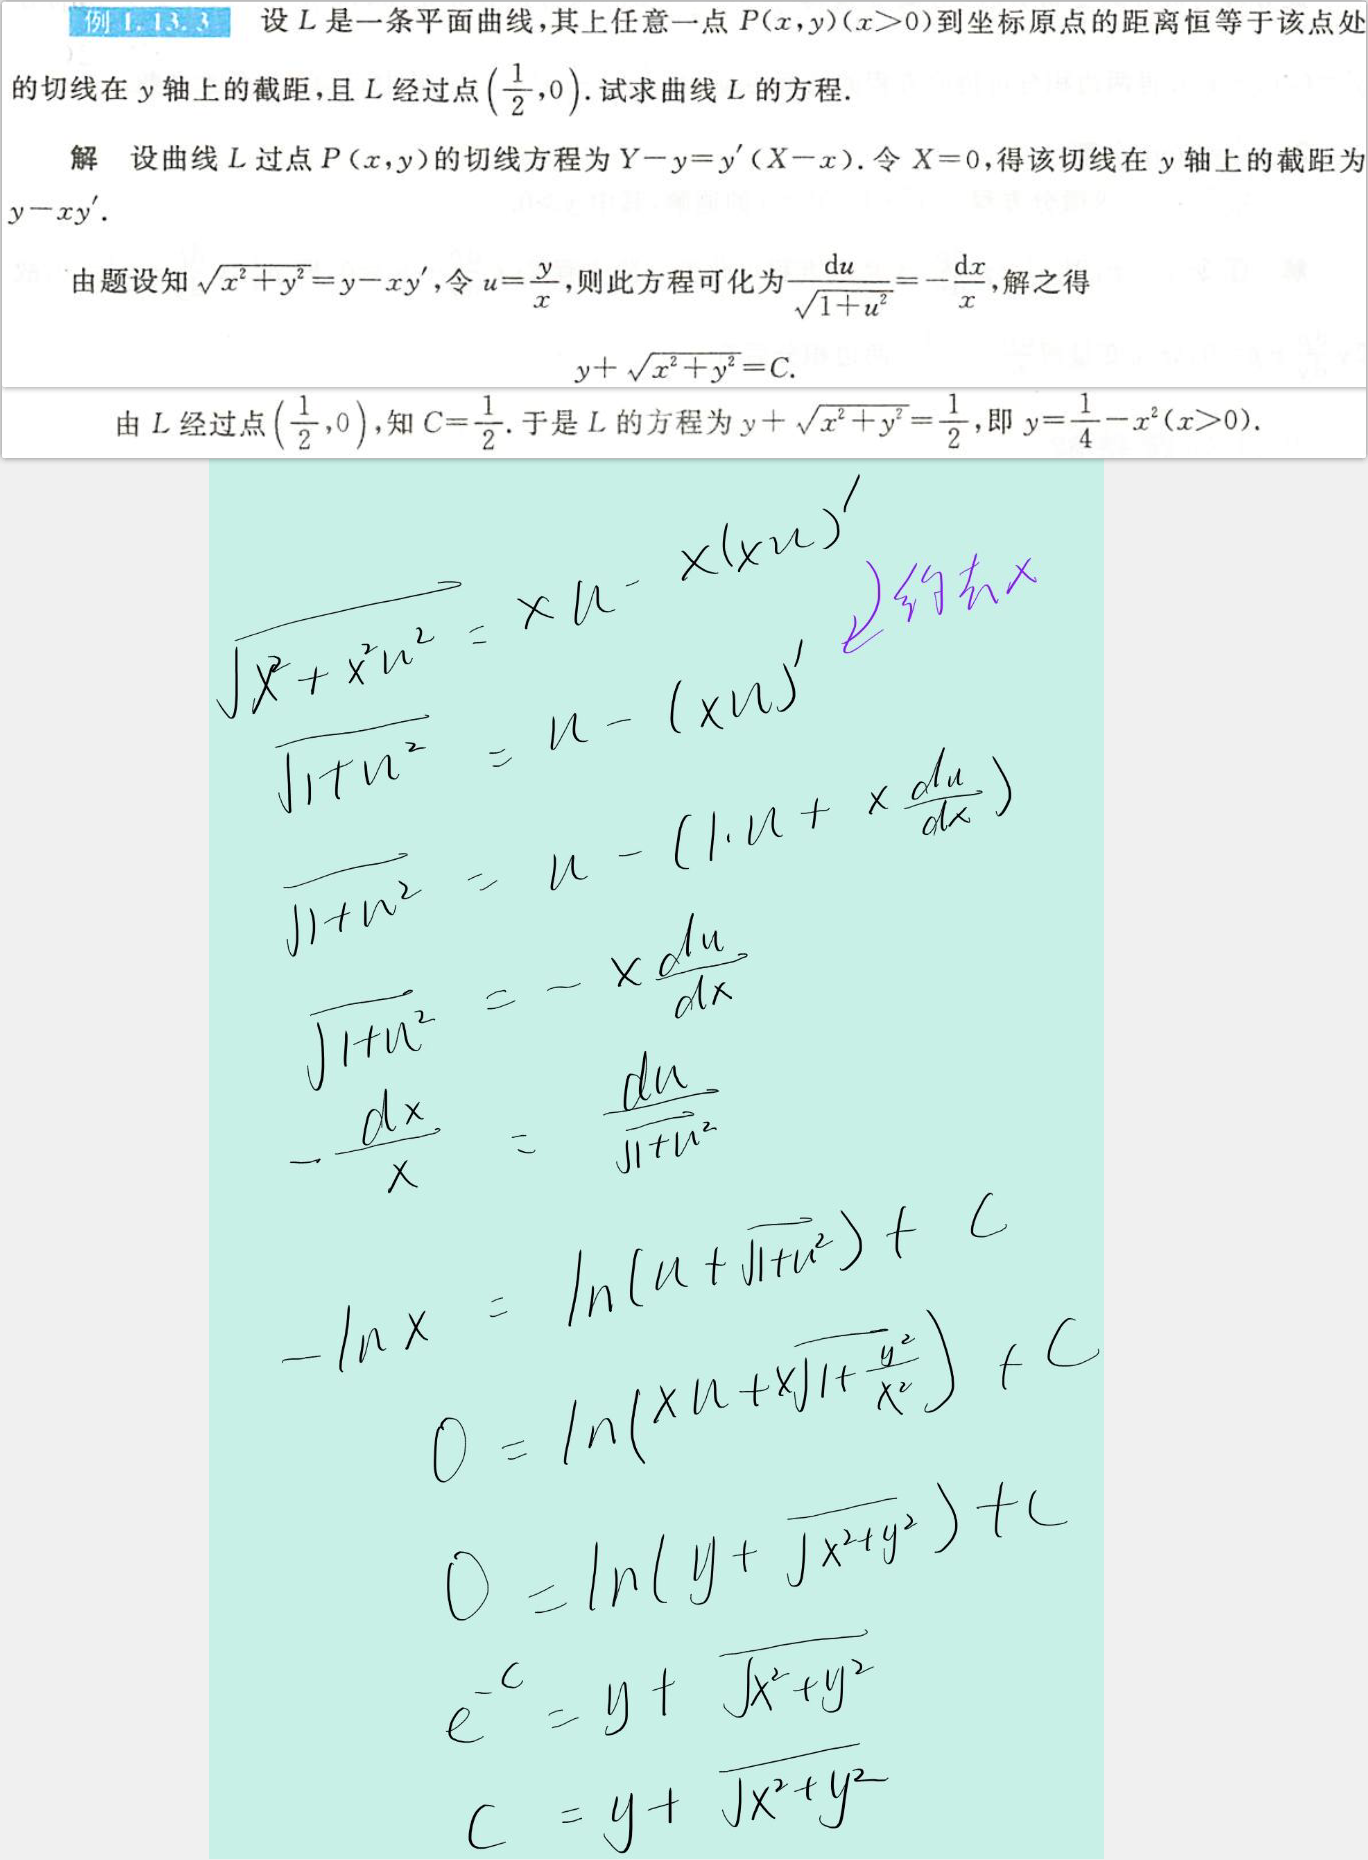 例 1.13.3 设 L 是一条平面曲线,其上任意一点 P(x,y)(x>0)到坐标原点的距离恒等于该点处
的切线在 y 轴上的截距,且 L 经过点(1/2,0).试求曲线 L 的方程.
解 设曲线 L 过点 P(x,y)的切线方程为 Y−y=y′(X−x).令 X=0,得该切线在 y 轴上的截距为
y−xy′.
由题设知 √(x²+y²)=y−xy′,令 u=y/x,则此方程可化为 du/√(1+u²)=−dx/x,解之得
y+√(x²+y²)=C.
由 L 经过点(1/2,0),知 C=1/2.于是 L 的方程为 y+√(x²+y²)=1/2,即 y=1/4−x²(x>0).
√(x²+x²u²) = xu − x(xu)′
约去x
√(1+u²) = u − (xu)′
√(1+u²) = u − (1·u + x du/dx)
√(1+u²) = − x du/dx
− dx/x = du/√(1+u²)
−ln x = ln(u+√(1+u²)) + C
0 = ln(xu+x√(1+y²/x²)) + C
0 = ln(y+√(x²+y²)) + C
e^(−C) = y+√(x²+y²)
C = y+√(x²+y²)